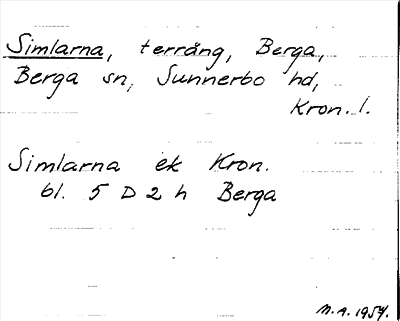 Simlarna, terräng, Berga,
Berga sn, Sunnerbo hd,
Kron. l.
Simlarna ek Kron.
bl. 5 D 2 h Berga
M.A. 1954.